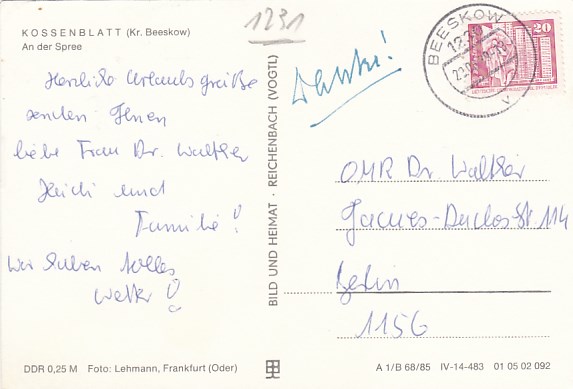 KOSSENBLATT (Kr. Beeskow)
An der Spree
1231
Herzliche Urlaubsgrüße
senden Ihnen
liebe Frau Dr. Walther
Heidi und
Familie!
Wir haben tolles
Wetter!
DDR 0,25 M Foto: Lehmann, Frankfurt (Oder)
BILD UND HEIMAT · REICHENBACH (VOGTL)
Danke!
BEESKOW
1230
20
OMR Dr Walther
Jacques-Duclos-Str 114
Berlin
1156
A 1/B 68/85 IV-14-483 01 05 02 092